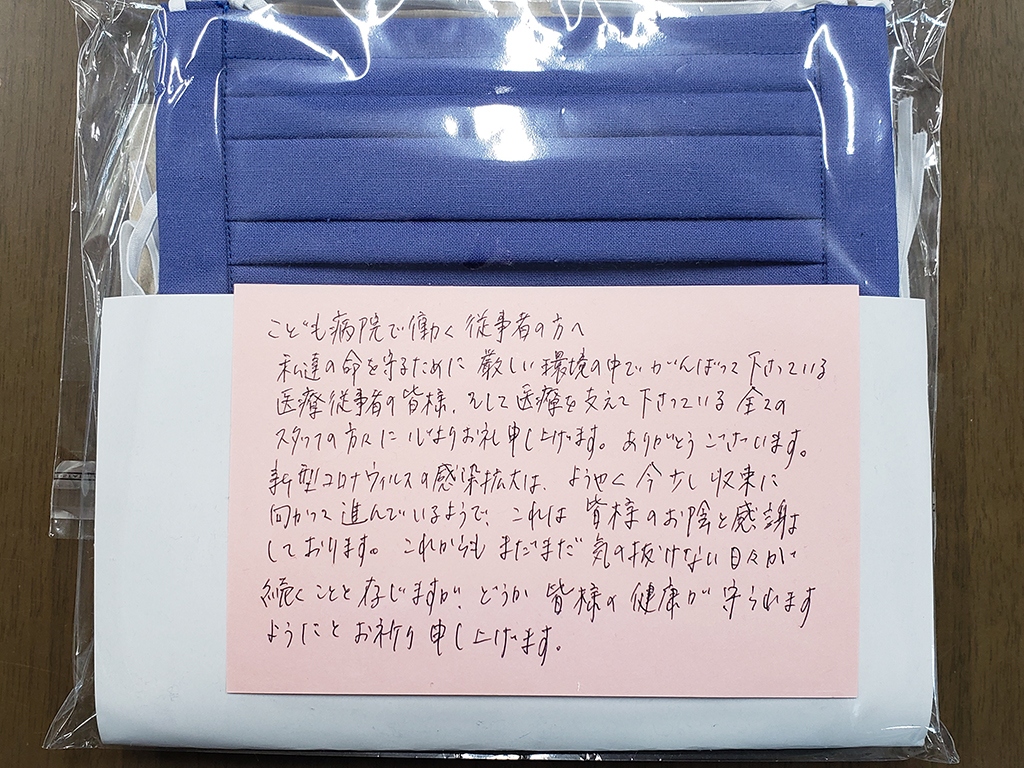 こども病院で働く従事者の方へ
私達の命を守るために厳しい環境の中でがんばって下さっている
医療従事者の皆様、そして医療を支えて下さっている全ての
スタッフの方々に心よりお礼申し上げます。ありがとうございます。
新型コロナウィルスの感染拡大は、ようやく今少し収束に
向かって進んでいるようで、これは皆様のお陰と感謝
しております。これからもまだまだ気の抜けない日々が
続くことと存じますが、どうか皆様の健康が守られます
ようにとお祈り申し上げます。